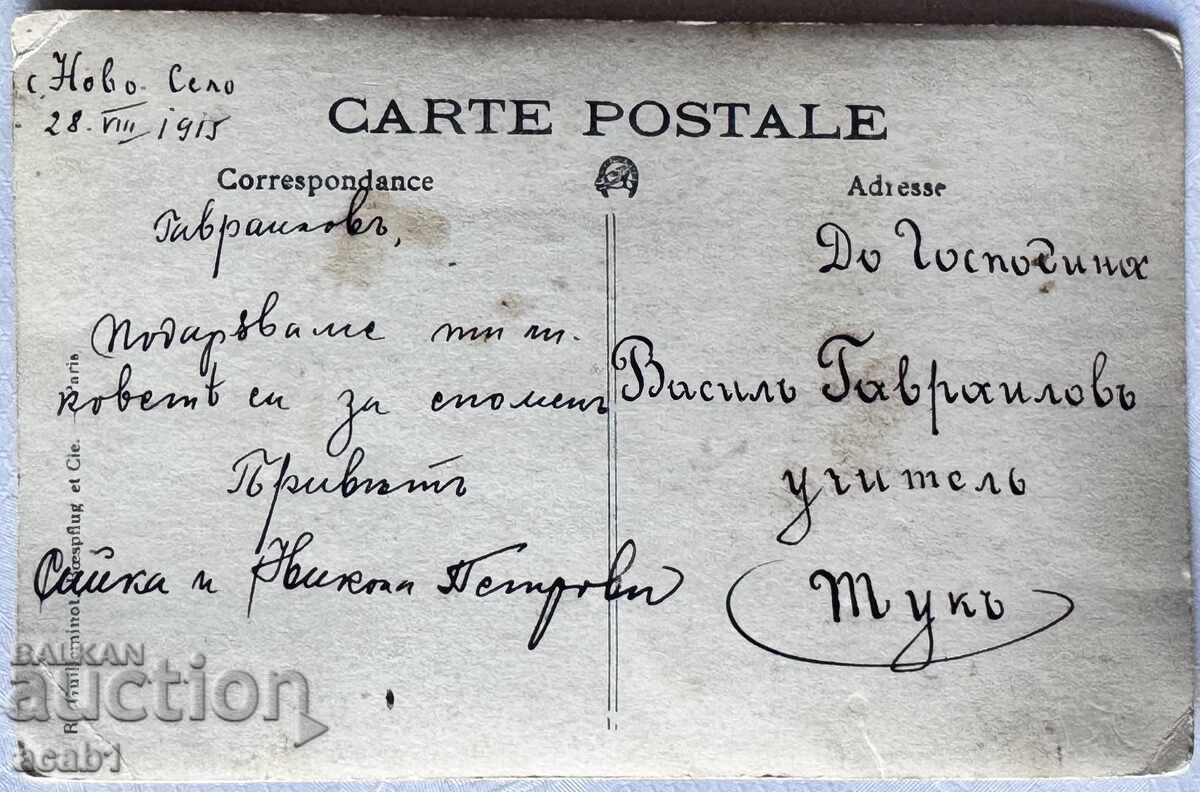 с. Ново Село
28. VIII 1915
CARTE POSTALE
Correspondance
Adresse
Гавраиловъ,
Подаряваме ти ли-
коветѣ си за споменъ
Привѣтъ
Сайка и Никола Петрови
До Господина
Василъ Гавраиловъ
учитель
Тукъ
R. Guilleminot, Bœspflug et Cie. Paris
BALKAN
auction
acab1